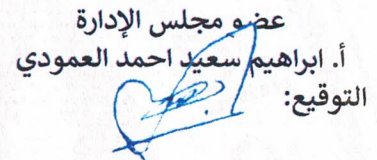 عضو مجلس الإدارة
أ. ابراهيم سعيد احمد العمودي
التوقيع: